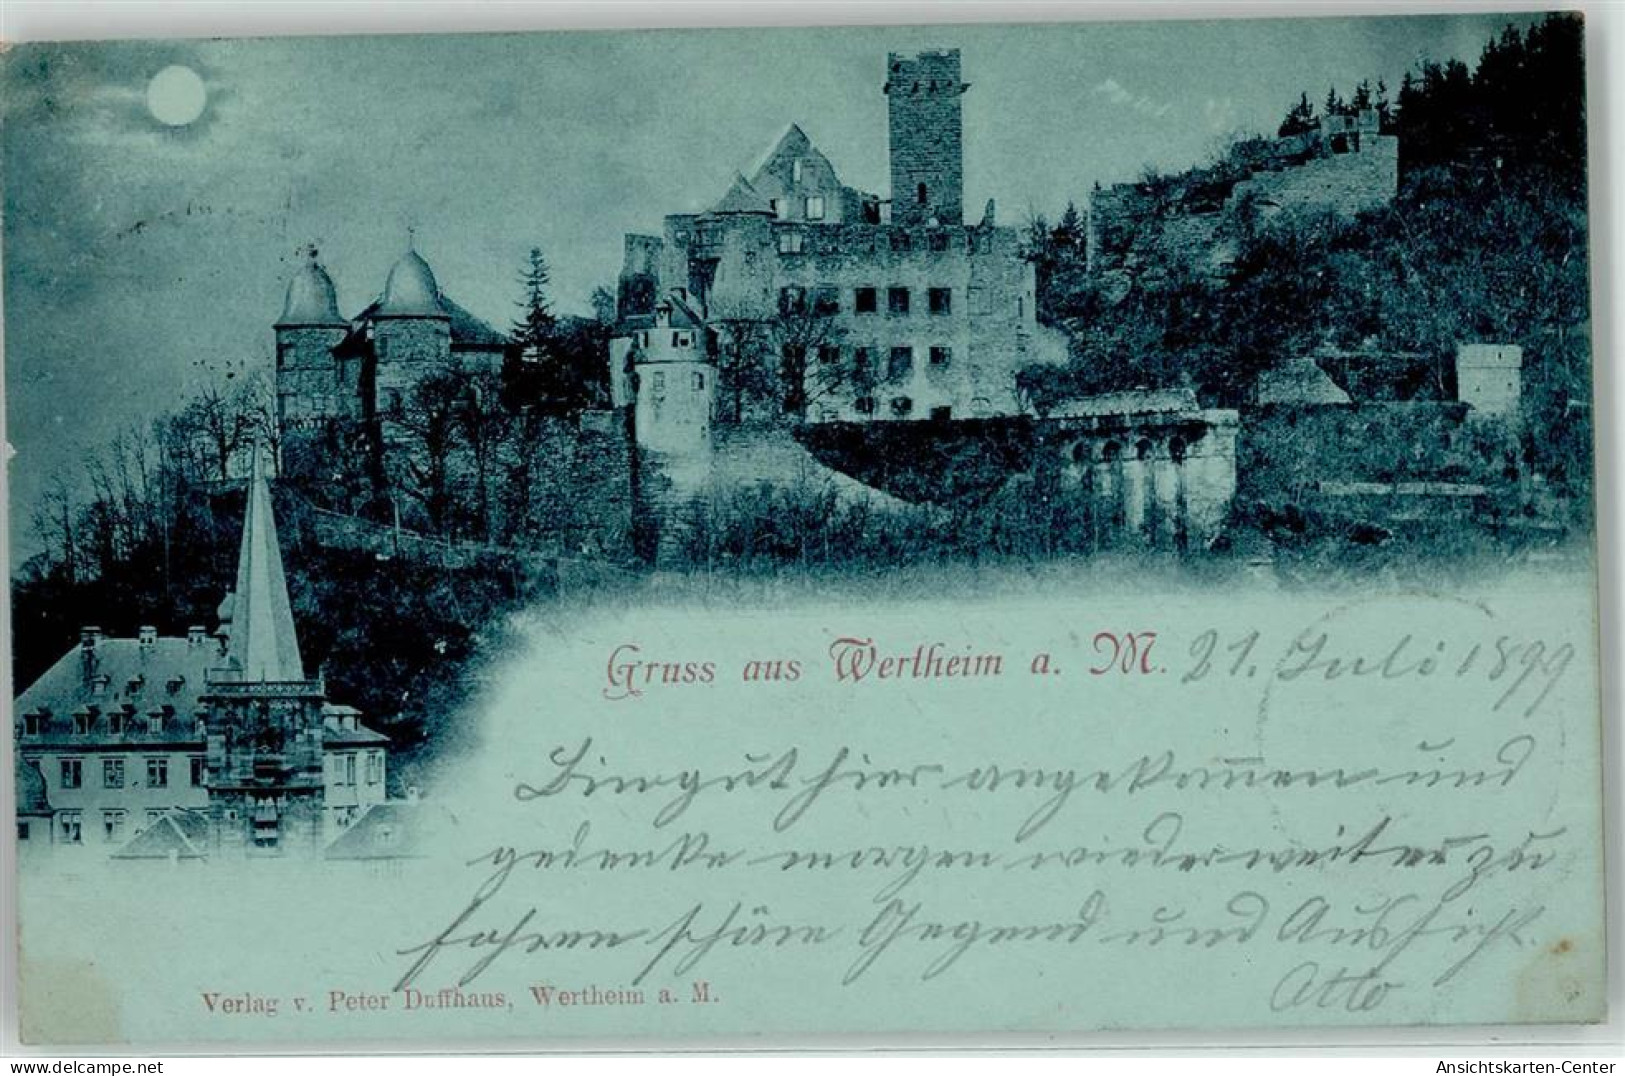 Gruss aus Wertheim a. M. 21. Juli 1899
Bin gut hier angekommen und
gedenke morgen wieder weiter zu
fahren schöne Gegend und Aussicht.
Otto
Verlag v. Peter Duffhaus, Wertheim a. M.
www.delcampe.net
Ansichtskarten-Center